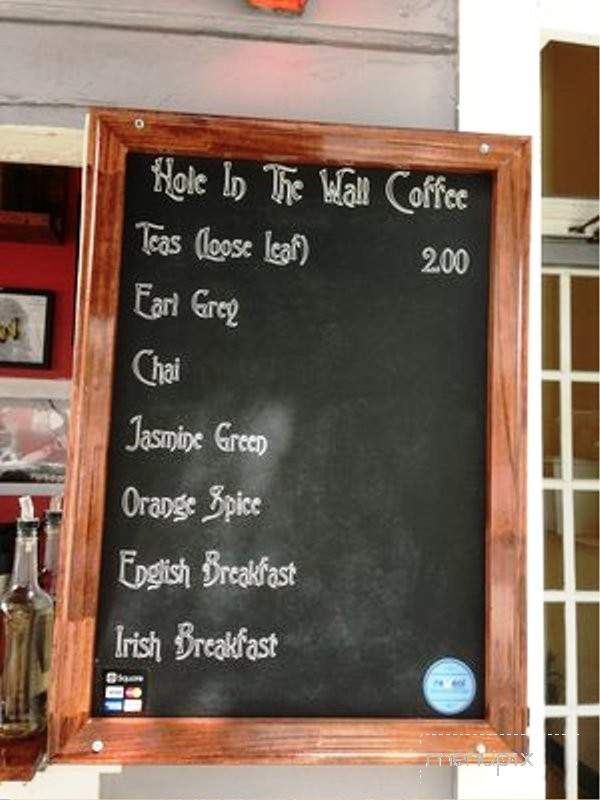 Hole In The Wall Coffee
Teas (loose leaf) 2.00
Earl Grey
Chai
Jasmine Green
Orange Spice
English Breakfast
Irish Breakfast
Square
VISA
menupix